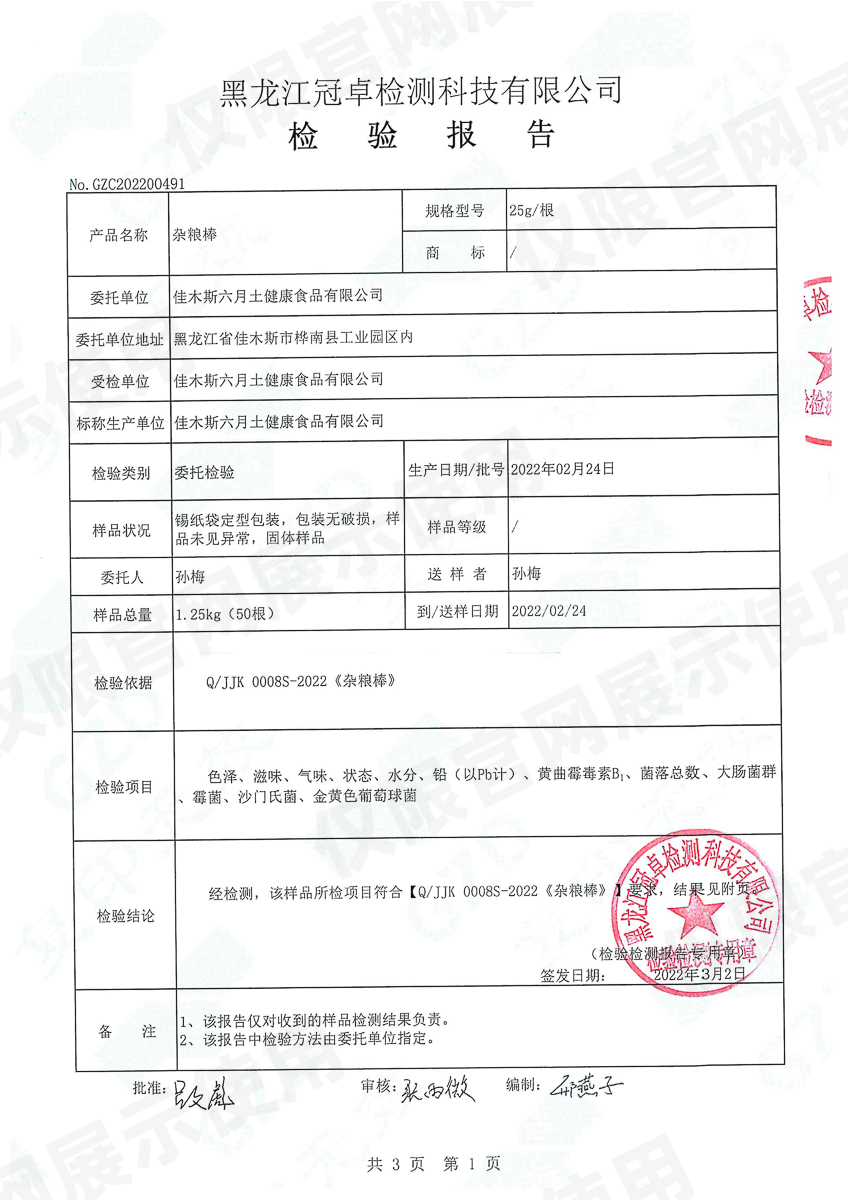 黑龙江冠卓检测科技有限公司
检 验 报 告
No.GZC202200491
产品名称 杂粮棒 规格型号 25g/根
商 标 /
委托单位 佳木斯六月土健康食品有限公司
委托单位地址 黑龙江省佳木斯市桦南县工业园区内
受检单位 佳木斯六月土健康食品有限公司
标称生产单位 佳木斯六月土健康食品有限公司
检验类别 委托检验 生产日期/批号 2022年02月24日
样品状况 锡纸袋定型包装，包装无破损，样
品未见异常，固体样品
样品等级 /
委托人 孙梅 送 样 者 孙梅
样品总量 1.25kg（50根） 到/送样日期 2022/02/24
检验依据 Q/JJK 0008S-2022《杂粮棒》
检验项目 色泽、滋味、气味、状态、水分、铅（以Pb计）、黄曲霉毒素B₁、菌落总数、大肠菌群
、霉菌、沙门氏菌、金黄色葡萄球菌
检验结论 经检测，该样品所检项目符合【Q/JJK 0008S-2022《杂粮棒》】要求，结果见附页。
（检验检测报告专用章）
签发日期： 2022年3月2日
黑龙江冠卓检测科技有限公司
检验检测专用章
备 注 1、该报告仅对收到的样品检测结果负责。
2、该报告中检验方法由委托单位指定。
批准： 审核： 编制：
共 3 页 第 1 页
仅限官网展示使用